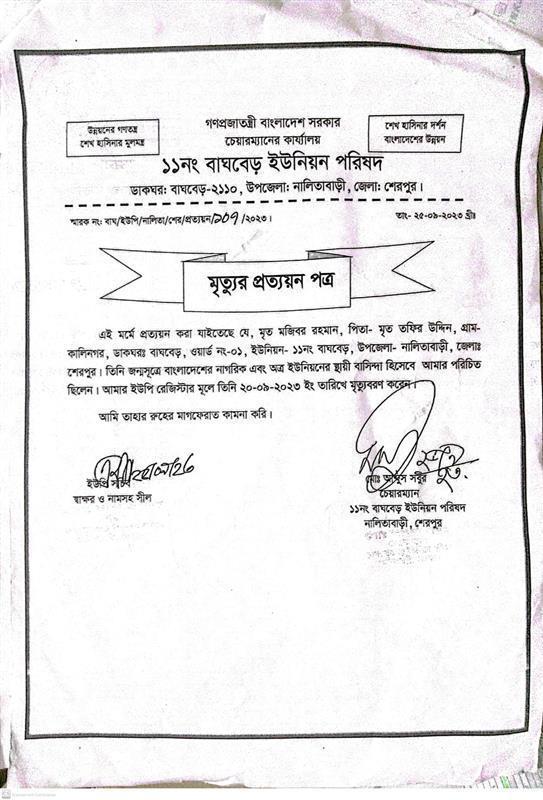 গণপ্রজাতন্ত্রী বাংলাদেশ সরকার
চেয়ারম্যানের কার্যালয়
উন্নয়নের গণতন্ত্র
শেখ হাসিনার মুলমন্ত্র
শেখ হাসিনার দর্শন
বাংলাদেশের উন্নয়ন
১১নং বাঘবেড় ইউনিয়ন পরিষদ
ডাকঘর: বাঘবেড়-২১১০, উপজেলা: নালিতাবাড়ী, জেলা: শেরপুর।
স্মারক নং: বাঘ/ইউপি/নালিতা/শের/প্রত্যয়ন/ /২০২৩।
তাং- ২৫-০৯-২০২৩ খ্রীঃ
মৃত্যুর প্রত্যয়ন পত্র
এই মর্মে প্রত্যয়ন করা যাইতেছে যে, মৃত মজিবর রহমান, পিতা- মৃত তফির উদ্দিন, গ্রাম-
কালিনগর, ডাকঘরঃ বাঘবেড়, ওয়ার্ড নং-০১, ইউনিয়ন- ১১নং বাঘবেড়, উপজেলা- নালিতাবাড়ী, জেলাঃ
শেরপুর। তিনি জন্মসূত্রে বাংলাদেশের নাগরিক এবং অত্র ইউনিয়নের স্থায়ী বাসিন্দা হিসেবে আমার পরিচিত
ছিলেন। আমার ইউপি রেজিস্টার মূলে তিনি ২০-০৯-২০২৩ ইং তারিখে মৃত্যুবরণ করেন।
আমি তাহার রুহের মাগফেরাত কামনা করি।
ইউপি
স্বাক্ষর ও নামসহ সীল
মোঃ আব্দুস সবুর
চেয়ারম্যান
১১নং বাঘবেড় ইউনিয়ন পরিষদ
নালিতাবাড়ী, শেরপুর